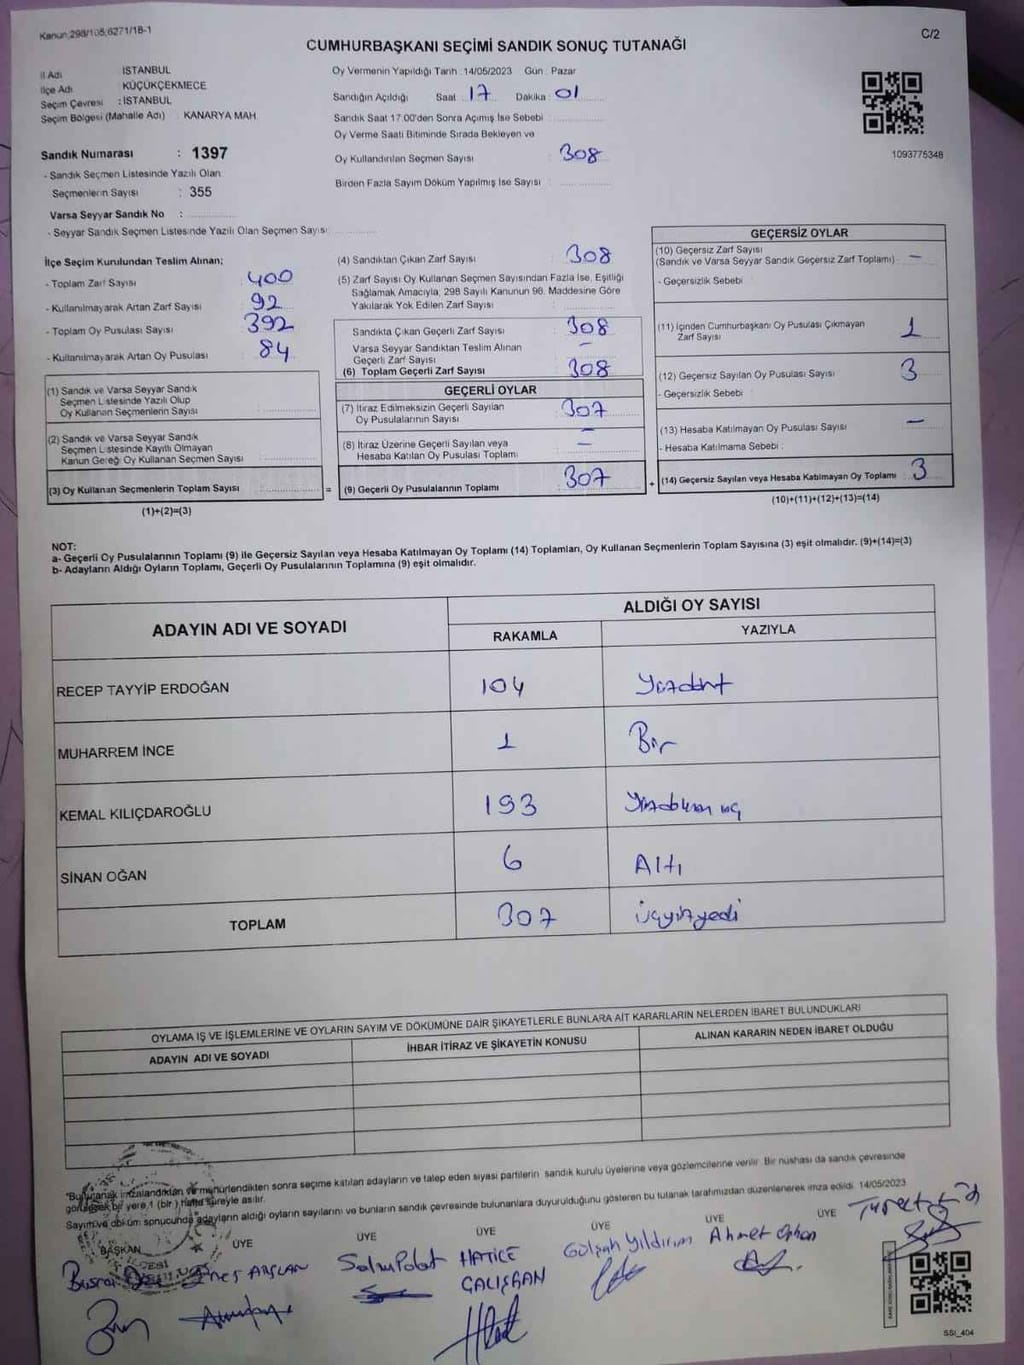 Kanun 298/105,6271/18-1
C/2
CUMHURBAŞKANI SEÇİMİ SANDIK SONUÇ TUTANAĞI
İl Adı : İSTANBUL
İlçe Adı : KÜÇÜKÇEKMECE
Seçim Çevresi : İSTANBUL
Seçim Bölgesi (Mahalle Adı) : KANARYA MAH.
Oy Vermenin Yapıldığı Tarih : 14/05/2023 Gün : Pazar
Sandığın Açıldığı Saat 17 Dakika 01
Sandık Saat 17:00'den Sonra Açımış İse Sebebi
Oy Verme Saati Bitiminde Sırada Bekleyen ve
Oy Kullandırılan Seçmen Sayısı : 308
Birden Fazla Sayım Döküm Yapılmış İse Sayısı :
1093775348
Sandık Numarası : 1397
- Sandık Seçmen Listesinde Yazılı Olan
Seçmenlerin Sayısı : 355
Varsa Seyyar Sandık No :
- Seyyar Sandık Seçmen Listesinde Yazılı Olan Seçmen Sayısı :
İlçe Seçim Kurulundan Teslim Alınan;
- Toplam Zarf Sayısı : 400
- Kullanılmayarak Artan Zarf Sayısı : 92
- Toplam Oy Pusulası Sayısı : 392
- Kullanılmayarak Artan Oy Pusulası : 84
(1) Sandık ve Varsa Seyyar Sandık
Seçmen Listesinde Yazılı Olup
Oy Kullanan Seçmenlerin Sayısı :
(2) Sandık ve Varsa Seyyar Sandık
Seçmen Listesinde Kayıtlı Olmayan
Kanun Gereği Oy Kullanan Seçmen Sayısı :
(3) Oy Kullanan Seçmenlerin Toplam Sayısı :
(1)+(2)=(3)
(4) Sandıktan Çıkan Zarf Sayısı : 308
(5) Zarf Sayısı Oy Kullanan Seçmen Sayısından Fazla İse, Eşitliği
Sağlamak Amacıyla, 298 Sayılı Kanunun 98. Maddesine Göre
Yakılarak Yok Edilen Zarf Sayısı :
Sandıkta Çıkan Geçerli Zarf Sayısı : 308
Varsa Seyyar Sandıktan Teslim Alınan
Geçerli Zarf Sayısı : —
(6) Toplam Geçerli Zarf Sayısı : 308
GEÇERLİ OYLAR
(7) İtiraz Edilmeksizin Geçerli Sayılan
Oy Pusulalarının Sayısı : 307
(8) İtiraz Üzerine Geçerli Sayılan veya
Hesaba Katılan Oy Pusulası Toplamı : —
= (9) Geçerli Oy Pusulalarının Toplamı : 307
GEÇERSİZ OYLAR
(10) Geçersiz Zarf Sayısı
(Sandık ve Varsa Seyyar Sandık Geçersiz Zarf Toplamı) : —
- Geçersizlik Sebebi :
(11) İçinden Cumhurbaşkanı Oy Pusulası Çıkmayan
Zarf Sayısı : 1
(12) Geçersiz Sayılan Oy Pusulası Sayısı : 3
- Geçersizlik Sebebi :
(13) Hesaba Katılmayan Oy Pusulası Sayısı : —
- Hesaba Katılmama Sebebi :
+ (14) Geçersiz Sayılan veya Hesaba Katılmayan Oy Toplamı : 3
(10)+(11)+(12)+(13)=(14)
NOT:
a- Geçerli Oy Pusulalarının Toplamı (9) ile Geçersiz Sayılan veya Hesaba Katılmayan Oy Toplamı (14) Toplamları, Oy Kullanan Seçmenlerin Toplam Sayısına (3) eşit olmalıdır. (9)+(14)=(3)
b- Adayların Aldığı Oyların Toplamı, Geçerli Oy Pusulalarının Toplamına (9) eşit olmalıdır.
ADAYIN ADI VE SOYADI
ALDIĞI OY SAYISI
RAKAMLA YAZIYLA
RECEP TAYYİP ERDOĞAN 104 Yüzdört
MUHARREM İNCE 1 Bir
KEMAL KILIÇDAROĞLU 193 Yüzdoksan üç
SİNAN OĞAN 6 Altı
TOPLAM 307 üçyüzyedi
OYLAMA İŞ VE İŞLEMLERİNE VE OYLARIN SAYIM VE DÖKÜMÜNE DAİR ŞİKAYETLERLE BUNLARA AİT KARARLARIN NELERDEN İBARET BULUNDUKLARI
ADAYIN ADI VE SOYADI İHBAR İTİRAZ VE ŞİKAYETİN KONUSU ALINAN KARARIN NEDEN İBARET OLDUĞU
"Bu tutanak imzalandıktan ve mühürlendikten sonra seçime katılan adayların ve talep eden siyasi partilerin sandık kurulu üyelerine veya gözlemcilerine verilir. Bir nüshası da sandık çevresinde
görülecek bir yere 1 (bir) hafta süreyle asılır.
Sayım ve döküm sonucunda adayların aldığı oyların sayılarını ve bunların sandık çevresinde bulunanlara duyurulduğunu gösteren bu tutanak tarafımızdan düzenlenerek imza edildi. 14/05/2023
BAŞKAN ÜYE ÜYE ÜYE ÜYE ÜYE ÜYE
Enes ARSLAN Salih Polat HATİCE ÇALIŞKAN Gülşah Yıldırım Ahmet
SSI_404